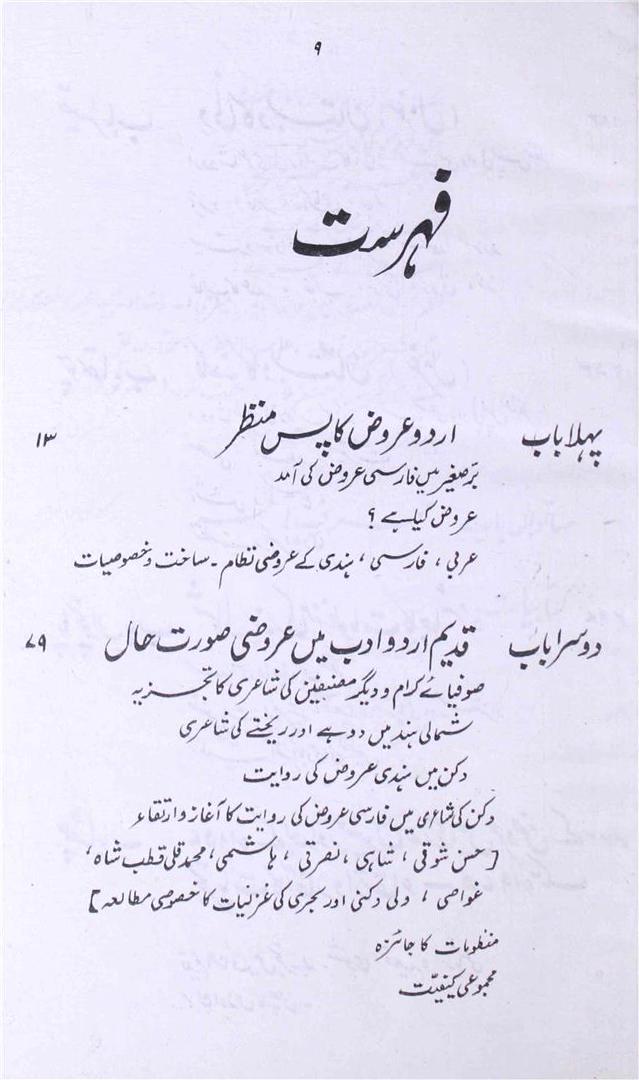 ۹
فہرست
پہلا باب اردو عروض کا پس منظر ۱۳
برّصغیر میں فارسی عروض کی آمد
عروض کیا ہے ؟
عربی ، فارسی ، ہندی کے عروضی نظام ۔ ساخت و خصوصیات
دوسرا باب قدیم اردو ادب میں عروضی صورت حال ۷۹
صوفیائے کرام و دیگر مصنفین کی شاعری کا تجزیہ
شمالی ہند میں دوہے اور ریختے کی شاعری
دکن میں ہندی عروض کی روایت
دکن کی شاعری میں فارسی عروض کی روایت کا آغاز و ارتقاء
[حسن شوقی ، شاہی ، نصرتی ، ہاشمی ، محمد قلی قطب شاہ ،
غواصی ، ولی دکنی اور بحری کی غزلیات کا خصوصی مطالعہ]
منظومات کا جائزہ
مجموعی کیفیّت